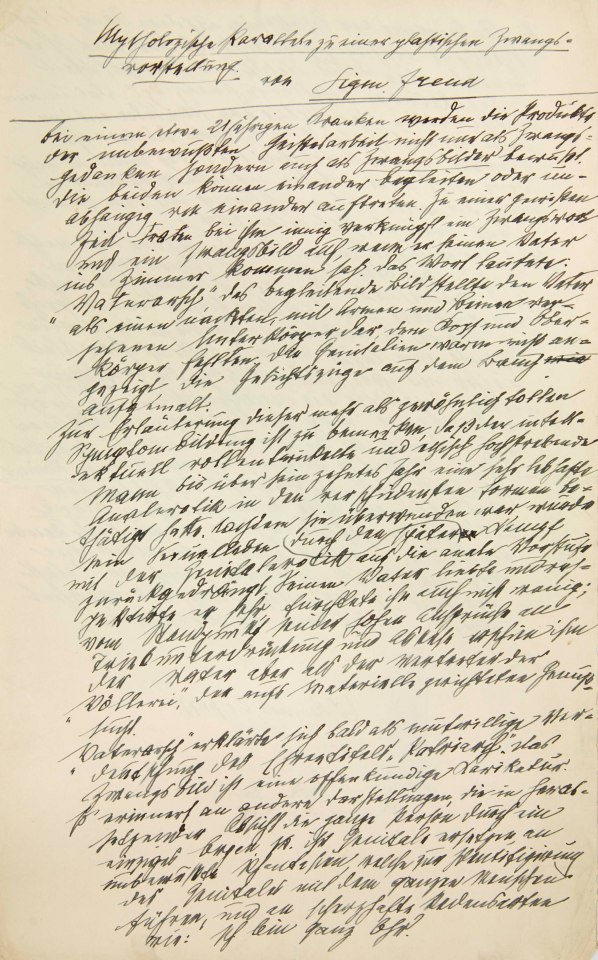 Mythologische Parallele zu einer plastischen Zwangs-
vorstellung.
von Sigm. Freud
Bei einem etwa 21 jährigen Kranken werden die Produkte
der unbewußten Geistesarbeit nicht nur als Zwangs-
gedanken sondern auch als Zwangsbilder bewußt.
Die beiden können einander begleiten oder un-
abhängig von einander auftreten. Zu einer gewissen
Zeit traten bei ihm innig verknüpft ein Zwangswort
und ein Zwangsbild auf, wenn er seinen Vater
ins Zimmer kommen sah. Das Wort lautete:
„Vaterarsch“, das begleitende Bild stellte den Vater
als einen nackten, mit Armen und Beinen ver-
sehenen Unterkörper dar, dem Kopf und Ober-
körper fehlten. Die Genitalien waren nicht an-
gezeigt, die Gesichtszüge auf dem Bauch
aufgemalt.
Zur Erläuterung dieser mehr als gewöhnlich tollen
Symptombildung ist zu bemerken, daß der intell-
ektuell vollentwickelte und ethisch hochstrebende
Mann bis über sein zehntes Jahr eine sehr lebhafte
Analerotik in den verschiedensten Formen be-
thätigt hatte. Nachdem sie überwunden war, wurde
sein Sexualleben durch den späteren Kampf
mit der Genitalerotik auf die anale Vorstufe
zurückgedrängt. Seinen Vater liebte und res-
pektirte er sehr, fürchtete ihn auch nicht wenig;
vom Standpunkt seiner hohen Ansprüche an
Triebunterdrückung und Askese erschien ihm
der Vater aber als der Vertreter der
„Völlerei“, der aufs Materielle gerichteten Genuß-
sucht.
„Vaterarsch“ erklärte sich bald als mutwillige Ver-
deutschung des Ehrentitels „Patriarch“. Das
Zwangsbild ist eine offenkundige Karikatur.
Es erinnert an andere Darstellungen, die in herab-
setzender Absicht die ganze Person durch ein
einziges Organ, z. B. ihr Genitale ersetzen, an
unbewußte Phantasien, welche zur Identifizierung
des Genitales mit dem ganzen Menschen
führen, und an scherzhafte Redensarten
wie: Ich bin ganz Ohr.